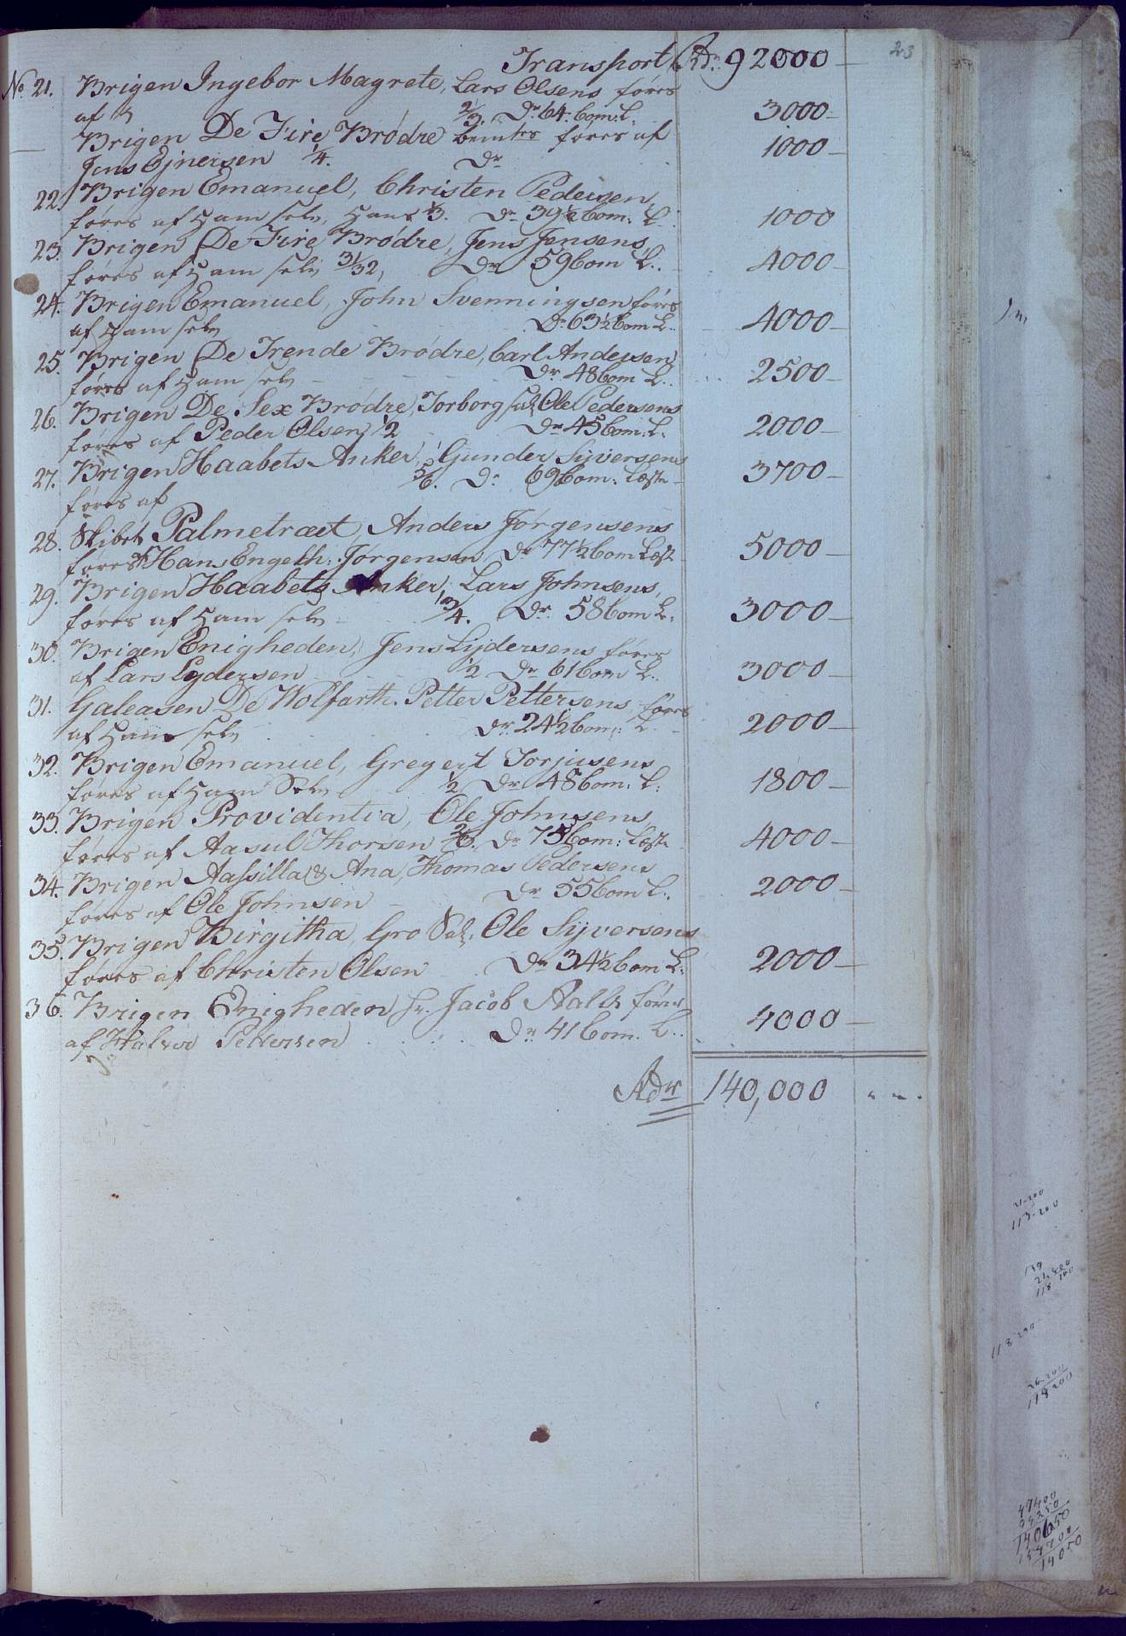 23
Transport Rdr 92000 —
No 21. Brigen Ingebor Magrete, Lars Olsens føres
af 2/3. Dr 64. Com. L. 3000 —
Brigen De Fire Brødre føres af
Jens Ejnersen 1/4. Dr 1000 —
22. Brigen Emanuel, Christen Pedersen
føres af Ham selv, Hans 1/3. Dr 39 1/2 Com. L. 1000
23. Brigen De Fire Brødre, Jens Jensens,
føres af Ham selv 31/32, Dr 59 Com L. 4000 —
24. Brigen Emanuel, John Svenningsen føres
af Ham selv Dr 63 1/2 Com L. 4000 —
25. Brigen De Trende Brødre, Carl Andersen
føres af Ham selv Dr 48 Com L. 2500 —
26. Brigen De Sex Brødre, Torborg sal. Ole Pedersens
føres af Peder Olsen 1/2 Dr 45 Com. L. 2000 —
27. Brigen Haabets Anker, Gunder Syversens
føres af 5/6. Dr 69 Com. Læster 3700 —
28. Skibet Palmetræet, Anders Jørgensens
føres af Hans Engelh: Jørgensen Dr 77 1/2 Com Læst 5000 —
29. Brigen Haabets Anker, Lars Johnsens,
føres af Ham selv 3/4. Dr 58 Com L. 3000 —
30. Brigen Enigheden, Jens Lydersens føres
af Lars Lydersen 1/2 Dr 61 Com L. 3000 —
31. Galeasen De Wolfarth. Petter Pettersens føres
af Ham selv Dr 24 1/2 Com: L. 2000 —
32. Brigen Emanuel, Gregert Torjusens
føres af Ham Selv 1/2 Dr 48 Com. L. 1800 —
33. Brigen Providentia, Ole Johnsens,
føres af Aasul Thorsen Dr Com: Læster 4000 —
34. Brigen Aassilla & Ana, Thomas Pedersens
føres af Ole Johnsen Dr 55 Com L. 2000 —
35. Brigen Birgitha, Gro Sal. Ole Syversens
føres af Christen Olsen Dr 34 1/2 Com L. 2000 —
36. Brigen Enigheden Hr. Jacob Aalls føres
af Halvor Pettersen Dr 41 Com. L. 4000 —
Rdr 140,000
113.200
118.200